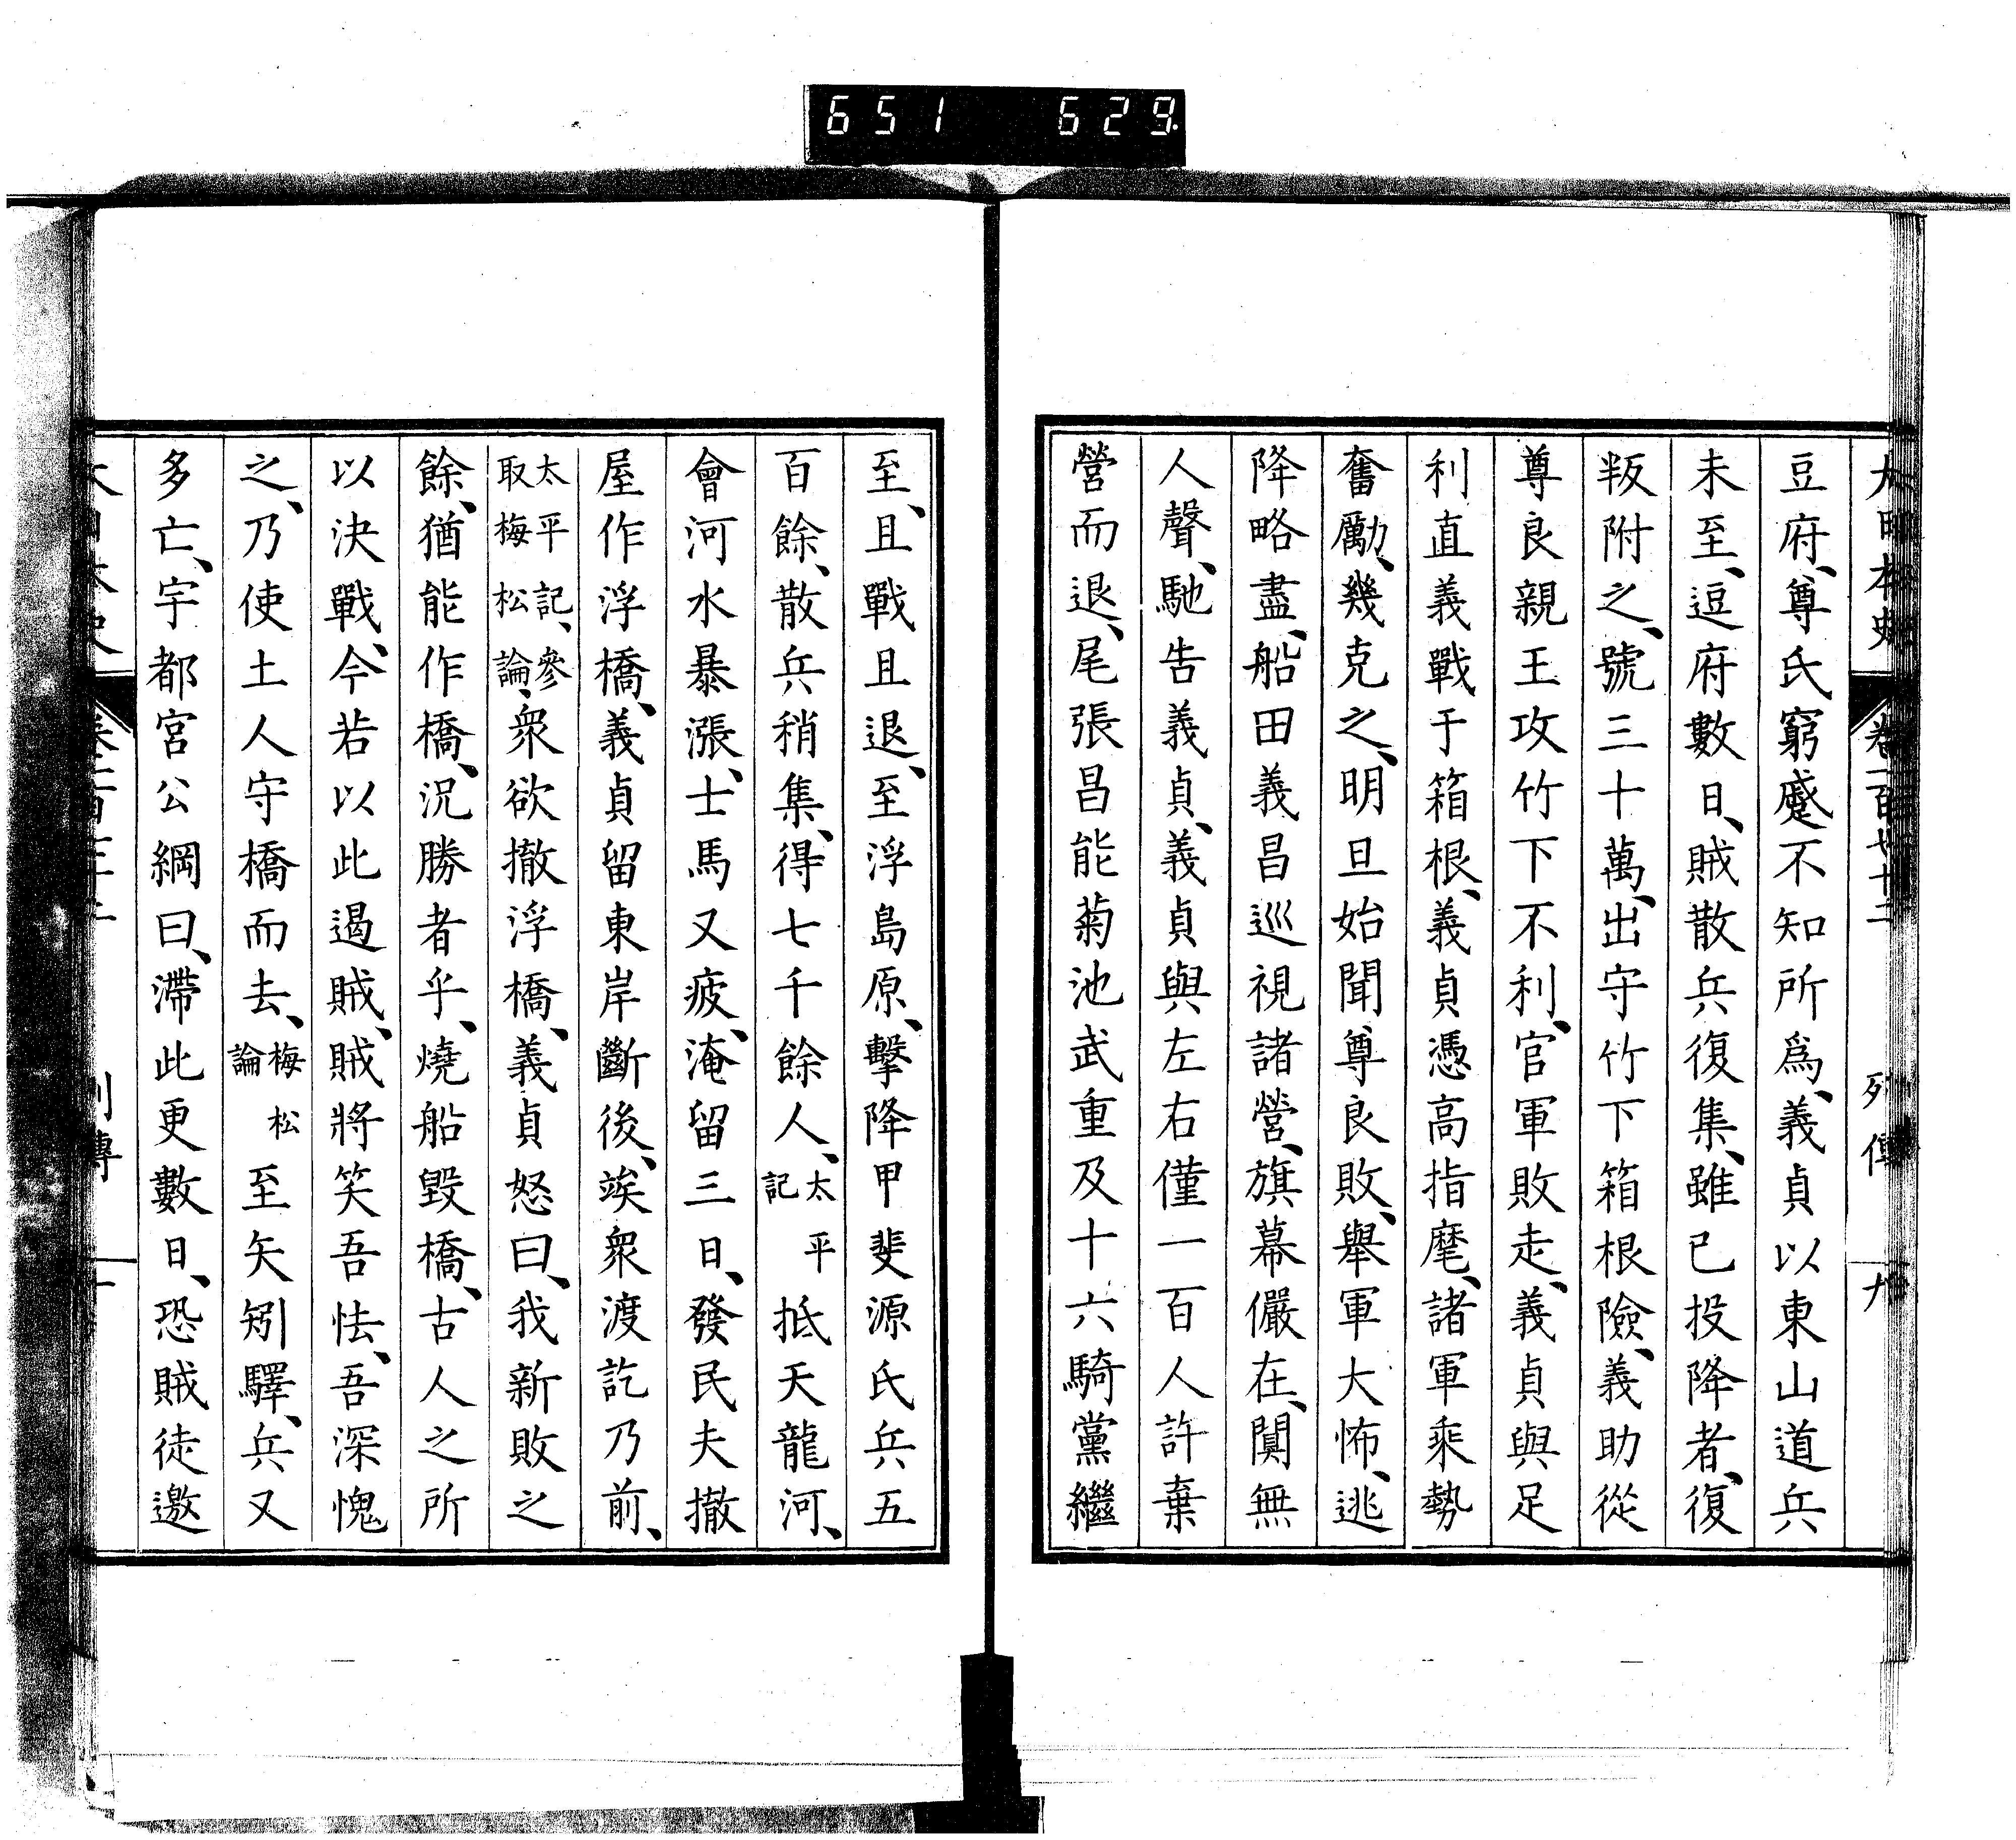 651 629.
大日本史 卷一百七十二 列傳 九
豆府、尊氏窮蹙不知所爲、義貞以東山道兵
未至、逗府數日、賊散兵復集、雖已投降者、復
叛附之、號三十萬、出守竹下箱根險、義助從
尊良親王攻竹下不利、官軍敗走、義貞與足
利直義戰于箱根、義貞憑高指麾、諸軍乘勢
奮勵、幾克之、明旦始聞尊良敗、舉軍大怖、逃
降略盡、船田義昌巡視諸營、旗幕儼在、闃無
人聲、馳告義貞、義貞與左右僅一百人許棄
營而退、尾張昌能菊池武重及十六騎黨繼
至、且戰且退、至浮島原、擊降甲斐源氏兵五
百餘、散兵稍集、得七千餘人、太平記抵天龍河、
會河水暴漲、士馬又疲、淹留三日、發民夫撤
屋作浮橋、義貞留東岸斷後、竢衆渡訖乃前、
太平記、參取梅松論、衆欲撤浮橋、義貞怒曰、我新敗之
餘、猶能作橋、況勝者乎、燒船毀橋、古人之所
以決戰、今若以此遏賊、賊將笑吾怯、吾深愧
之、乃使土人守橋而去、梅松論至矢矧驛、兵又
多亡、宇都宮公綱曰、滯此更數日、恐賊徒邀